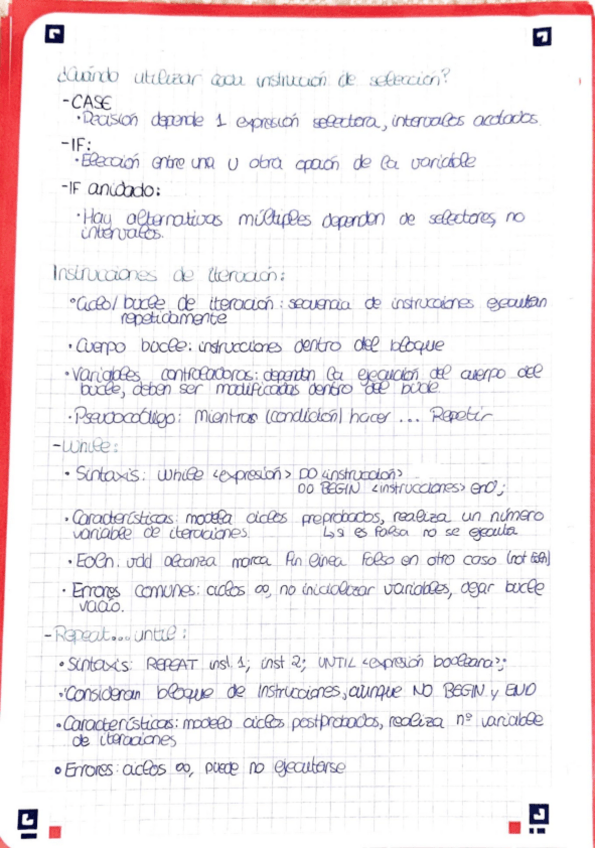 ¿Cuándo utilizar cada instrucción de selección?
-CASE
·Decisión depende 1 expresión selectora, intervalos acotados.
-IF:
·Elección entre una u otra opción de la variable
-IF anidado:
·Hay alternativas múltiples dependen de selectores, no
intervalos.
Instrucciones de iteración:
·Ciclo/bucle de iteración: secuencia de instrucciones ejecutan
repetidamente
·Cuerpo bucle: instrucciones dentro del bloque
·Variables controladoras: dependen la ejecución del cuerpo del
bucle, deben ser modificadas dentro del bucle.
·Pseudocódigo: Mientras (condición) hacer ... Repetir
-While:
·Sintaxis: While <expresión> DO <instrucción>
DO BEGIN <instrucciones> end;
·Características: modela ciclos preprobados, realiza un número
variable de iteraciones. ↳ s es falsa no se ejecuta
·Eoln: vdd alcanza marca fin línea Falso en otro caso (not Eoln)
·Errores comunes: ciclos ∞, no inicializar variables, dejar bucle
vacío.
-Repeat...until:
·Sintaxis: REPEAT inst 1; inst 2; UNTIL <expresión booleana>;
·Consideran bloque de instrucciones, aunque NO BEGIN y END
·Características: modelo ciclos postprobados, realiza nº variable
de iteraciones
·Errores: ciclos ∞, puede no ejecutarse